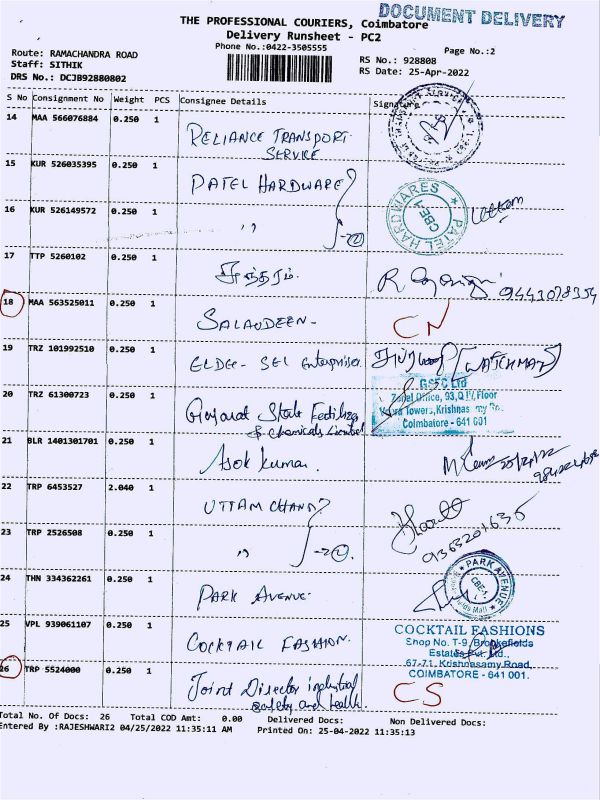 DOCUMENT DELIVERY
THE PROFESSIONAL COURIERS, Coimbatore
Delivery Runsheet - PC2
Phone No.:0422-3505555
Page No.:2
Route: RAMACHANDRA ROAD
Staff: SITHIK
RS No.: 928808
DRS No.: DCJB92880802
RS Date: 25-Apr-2022
S No Consignment No Weight PCS Consignee Details Signature
14 MAA 566076884 0.250 1 RELIANCE TRANSPORT SERVICE
15 KUR 526035395 0.250 1 PATEL HARDWARE
PATEL HARDWARES
CBE-1
16 KUR 526149572 0.250 1 " -2
17 TTP 5260102 0.250 1 சுந்தரம்.
R 9443078354
18 MAA 563525011 0.250 1 SALAUDEEN - CN
19 TRZ 101992510 0.250 1 ELDEE - SEL Enterprises (WATCHMAN)
20 TRZ 61300723 0.250 1 Gujarat State Fertilizer & Chemicals Limited
GSFC Ltd
Zonal Office, 93, Floor
Towers, Krishnas my Ro
Coimbatore - 641 001
21 BLR 1401301701 0.250 1 Asok Kumar.
22 TRP 6453527 2.040 1 UTTAM CHAND
23 TRP 2526508 0.250 1 " -2
9363201635
24 THN 334362261 0.250 1 PARK AVENUE.
PARK AVENUE
CBE-1
25 VPL 939061107 0.250 1 COCKTAIL FASHION.
COCKTAIL FASHIONS
Shop No. T-9, Brookefields
Estates Pvt. Ltd.,
67-71, Krishnasamy Road,
COIMBATORE - 641 001.
26 TRP 5524000 0.250 1 Joint Director industrial safety and health. CS
Total No. Of Docs: 26 Total COD Amt: 0.00 Delivered Docs: Non Delivered Docs:
Entered By :RAJESHWARI2 04/25/2022 11:35:11 AM Printed On: 25-04-2022 11:35:13